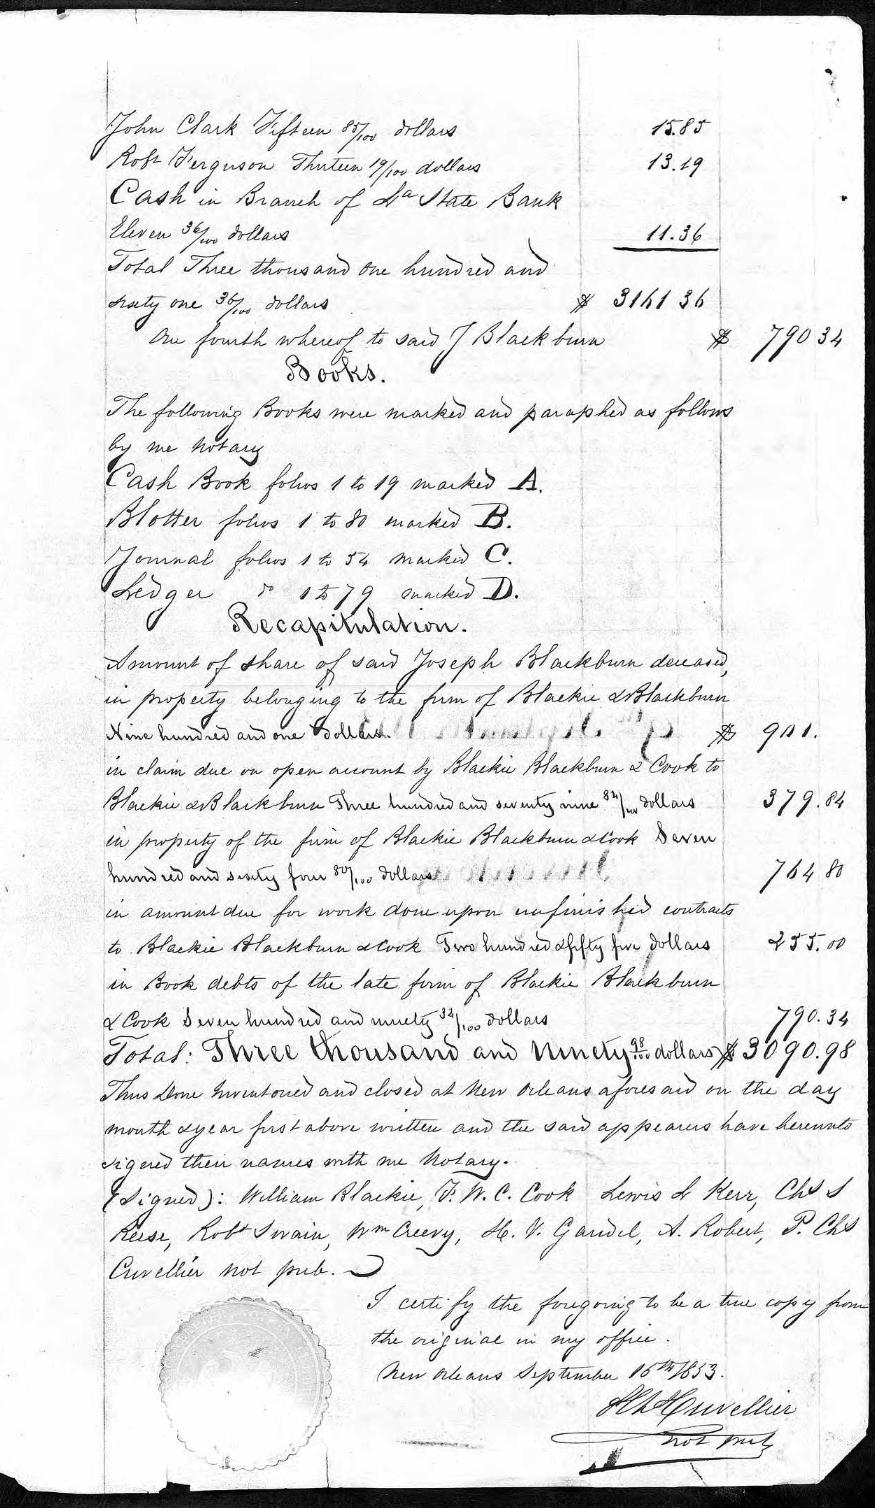 John Clark Fifteen 85/100 dollars 15.85
Robt Ferguson Thirteen 19/100 dollars 13.19
Cash in Branch of La State Bank
Eleven 36/100 dollars 11.36
Total Three thousand one hundred and
sixty one 36/100 dollars $ 3161 36
One fourth whereof to said J Blackburn $ 790 34
Books.
The following Books were marked and paraphed as follows
by me Notary
Cash Book folios 1 to 19 marked A.
Blotter folios 1 to 80 marked B.
Journal folios 1 to 54 marked C.
Ledger do 1 to 79 marked D.
Recapitulation.
Amount of share of said Joseph Blackburn deceased,
in property belonging to the firm of Blackie & Blackburn
Nine hundred and one dollars. $ 901.
in claim due on open account by Blackie Blackburn & Cook to
Blackie & Blackburn Three hundred and seventy nine 84/100 dollars 379.84
in property of the firm of Blackie Blackburn & Cook Seven
hundred and sixty four 80/100 dollars 764 80
in amount due for work done upon unfinished contracts
to Blackie Blackburn & Cook Two hundred & fifty five dollars 255.00
in Book debts of the late firm of Blackie Blackburn
& Cook Seven hundred and ninety 34/100 dollars 790.34
Total: Three thousand and ninety 98/100 dollars $ 3090.98
Thus Done Inventoried and closed at New Orleans aforesaid on the day
month & year first above written and the said appearers have hereunto
signed their names with me Notary.
(Signed): William Blackie, F. W. C. Cook Lewis L Kerr, Chs S
Reese, Robt Swain, Wm Creevy, H. V. Gardel, A. Robert, P. Chs
Cuvellier not pub.
I certify the foregoing to be a true copy from
the original in my office.
New Orleans September 16th 1853.
Cuvellier
not pub